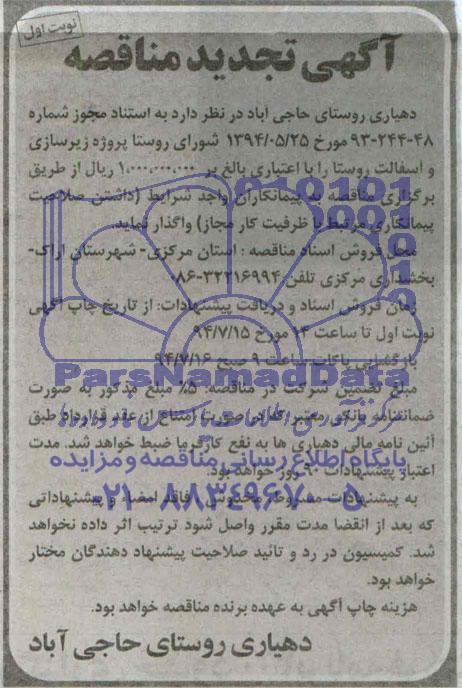 نوبت اول
آگهی تجدید مناقصه
دهیاری روستای حاجی آباد در نظر دارد به استناد مجوز شماره
۹۳-۲۴۴-۴۸ مورخ ۱۳۹۴/۰۵/۲۵ شورای روستا پروژه زیرسازی
و اسفالت روستا را با اعتباری بالغ بر ۱,۰۰۰,۰۰۰,۰۰۰ ریال از طریق
برگزاری مناقصه به پیمانکاران واجد شرایط (داشتن صلاحیت
پیمانکاری مرتبط با ظرفیت کار مجاز) واگذار نماید.
محل فروش اسناد مناقصه : استان مرکزی- شهرستان اراک-
بخشداری مرکزی تلفن ۳۲۲۱۶۹۹۴-۰۸۶
زمان فروش اسناد و دریافت پیشنهادات: از تاریخ چاپ آگهی
نوبت اول تا ساعت ۱۴ مورخ ۹۴/۷/۱۵
بازگشایی پاکات ساعت ۹ صبح ۹۴/۷/۱۶
ParsNamadData
مبلغ تضمین شرکت در مناقصه: ۵٪ مبلغ مذکور به صورت
ضمانتنامه بانکی معتبر که در صورت امتناع از عقد قرارداد طبق
آئین نامه مالی دهیاری ها به نفع کارفرما ضبط خواهد شد. مدت
پایگاه اطلاع رسانی مناقصه و مزایده
اعتبار پیشنهادات ۹۰ روز خواهد بود.
۰۲۱-۸۸۳۴۹۶۷۰-۵
به پیشنهادات مشروط، مخدوش، فاقد امضاء و پیشنهاداتی
که بعد از انقضا مدت مقرر واصل شود ترتیب اثر داده نخواهد
شد. کمیسیون در رد و تائید صلاحیت پیشنهاد دهندگان مختار
خواهد بود.
هزینه چاپ آگهی به عهده برنده مناقصه خواهد بود.
دهیاری روستای حاجی آباد